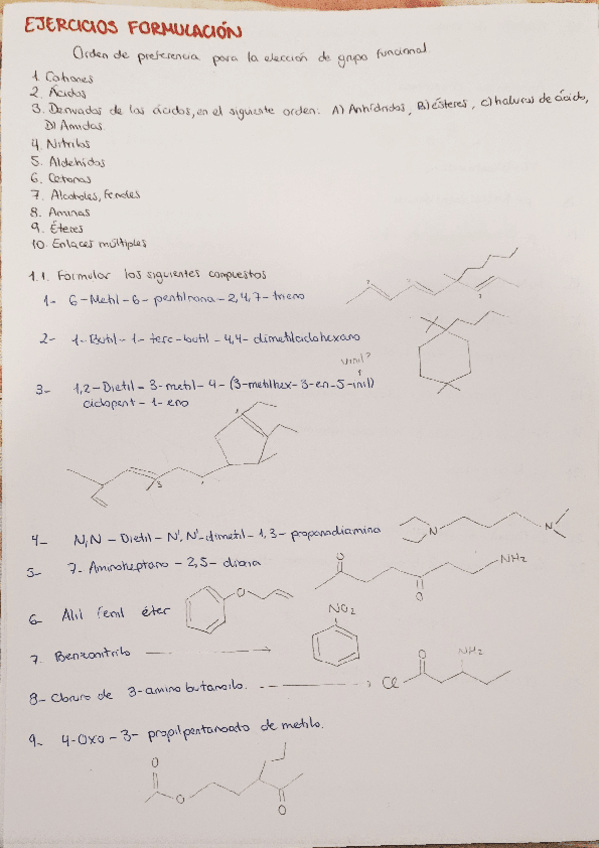 EJERCICIOS FORMULACIÓN
Orden de preferencia para la elección de grupo funcional
1. Cationes
2. Ácidos
3. Derivados de los ácidos, en el siguiente orden: A) Anhídridos, B) ésteres, C) haluros de ácido,
D) Amidas
4. Nitrilos
5. Aldehídos
6. Cetonas
7. Alcoholes, Fenoles
8. Aminas
9. Éteres
10. Enlaces múltiples
1.1. Formular los siguientes compuestos
1- 6-Metil-6-pentilnona-2,4,7-trieno
2- 1-Butil-1-terc-butil-4,4-dimetilciclohexano
vinil?
3- 1,2-Dietil-3-metil-4-(3-metilhex-3-en-5-inil)
ciclopent-1-eno
3
4- N,N-Dietil-N',N'-dimetil-1,3-propanodiamina
N
N
5- 7-Aminoheptano-2,5-diona
O
O
NH2
6- Alil fenil éter
O
7. Benzonitrilo
NO2
8- Cloruro de 3-aminobutanoilo.
Cl
O
NH2
9- 4-Oxo-3-propilpentanoato de metilo.
O
O
O